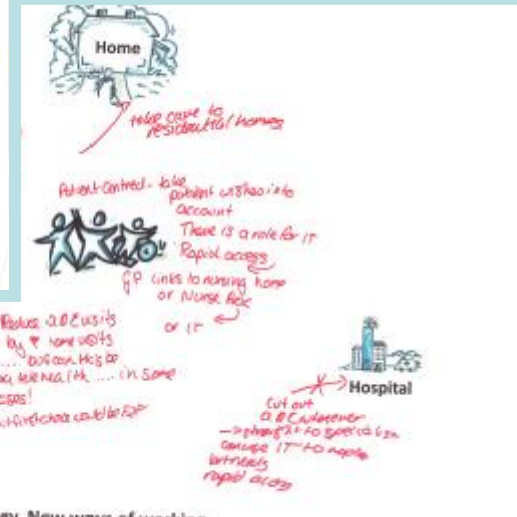 Home
take care to
residential homes
Patient Centred - take
patient wishes into
account
There is a role for IT
Rapid access
GP links to nursing home
or Nurse
or IT
Reduce visits
by home visits
.... but can this be
telehealth .... in some
first choice would be F2F
Hospital
Cut out
straight to specialism
can use IT to
rapid access
New ways of working